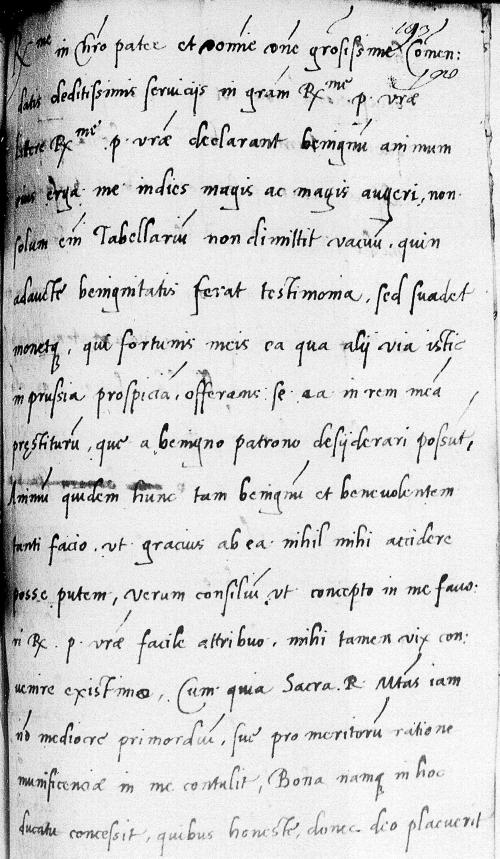 193
Rx^me in Chro pater et Domine dne grosissime Comen:
datis deditissimis servicijs in grám Rx^me p. vrae
littere Rx^me p. vrae declarant benignú animum
eius erga me indies magis ac magis augeri, non
solum em Tabellariú non dimittit vacuú, quin
adaucte benignitatis ferat testimonia, sed suadet
monetq, qui fortunis meis ea qua alij via istic
in prussia prospiciá, offerens se ea in rem meá
prestiturú, que a benigno patrono desijderari possút,
Animú quidem hunc tam benignú et benevolentem
tanti facio, vt gracius ab ea nihil mihi accidere
posse putem, verum consiliú vt concepto in me favo:
ri Rx. p. vrae facile attribuo, mihi tamen vix con:
venire existimo, Cum quia Sacra. R. Mtas iam
nó mediocre primordiú, sue pro meritorú ratione
munificenciae in me contulit, Bona namq in hoc
ducatu concessit, quibus honeste, donec deo placuerit